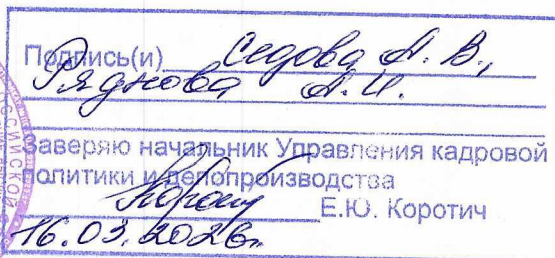 Подпись(и) Седова А. В.,
Ряднова А. И.
Заверяю начальник Управления кадровой
политики и делопроизводства
Е.Ю. Коротич
16.03.2026г.